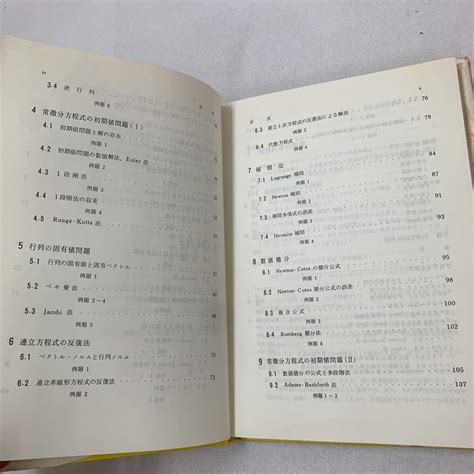 iv
目 次
3-4 逆行列
例題 6
4 常微分方程式の初期値問題(Ⅰ)
4.1 初期値問題と解の存在
例題 1
4.2 初期値問題の数値解法，Euler 法
例題 2
4.3 1段階法
例題 3
4.4 1段階法の収束
例題 4
4.5 Runge-Kutta 法
5 行列の固有値問題
5.1 行列の固有値と固有ベクトル
例題 1
5.2 ベキ乗法
例題 2〜4
5.3 Jacobi 法
例題 5
6 連立方程式の反復法
6.1 ベクトル・ノルムと行列ノルム
例題 1
70
6.2 連立非線形方程式の反復法
例題 2
73
目 次
v
6.3 連立1次方程式の反復法による解法
76
例題 3
6.4 代数方程式
79
例題 4
7 補間法
7.1 Lagrange 補間
84
例題 1
7.2 Newton 補間
87
例題 2
7.3 補間多項式の誤差
91
例題 3
7.4 Hermite 補間
94
例題 4
8 数値積分
8.1 Newton-Cotes の積分公式
95
例題 1
8.2 Newton-Cotes の積分公式の誤差
98
例題 2
8.3 複合公式
例題 3
8.4 Romberg 積分法
102
例題 4
9 常微分方程式の初期値問題(Ⅱ)
9.1 数値積分の公式と多段階法
105
9.2 Adams-Bashforth 法
107
例題 1〜2